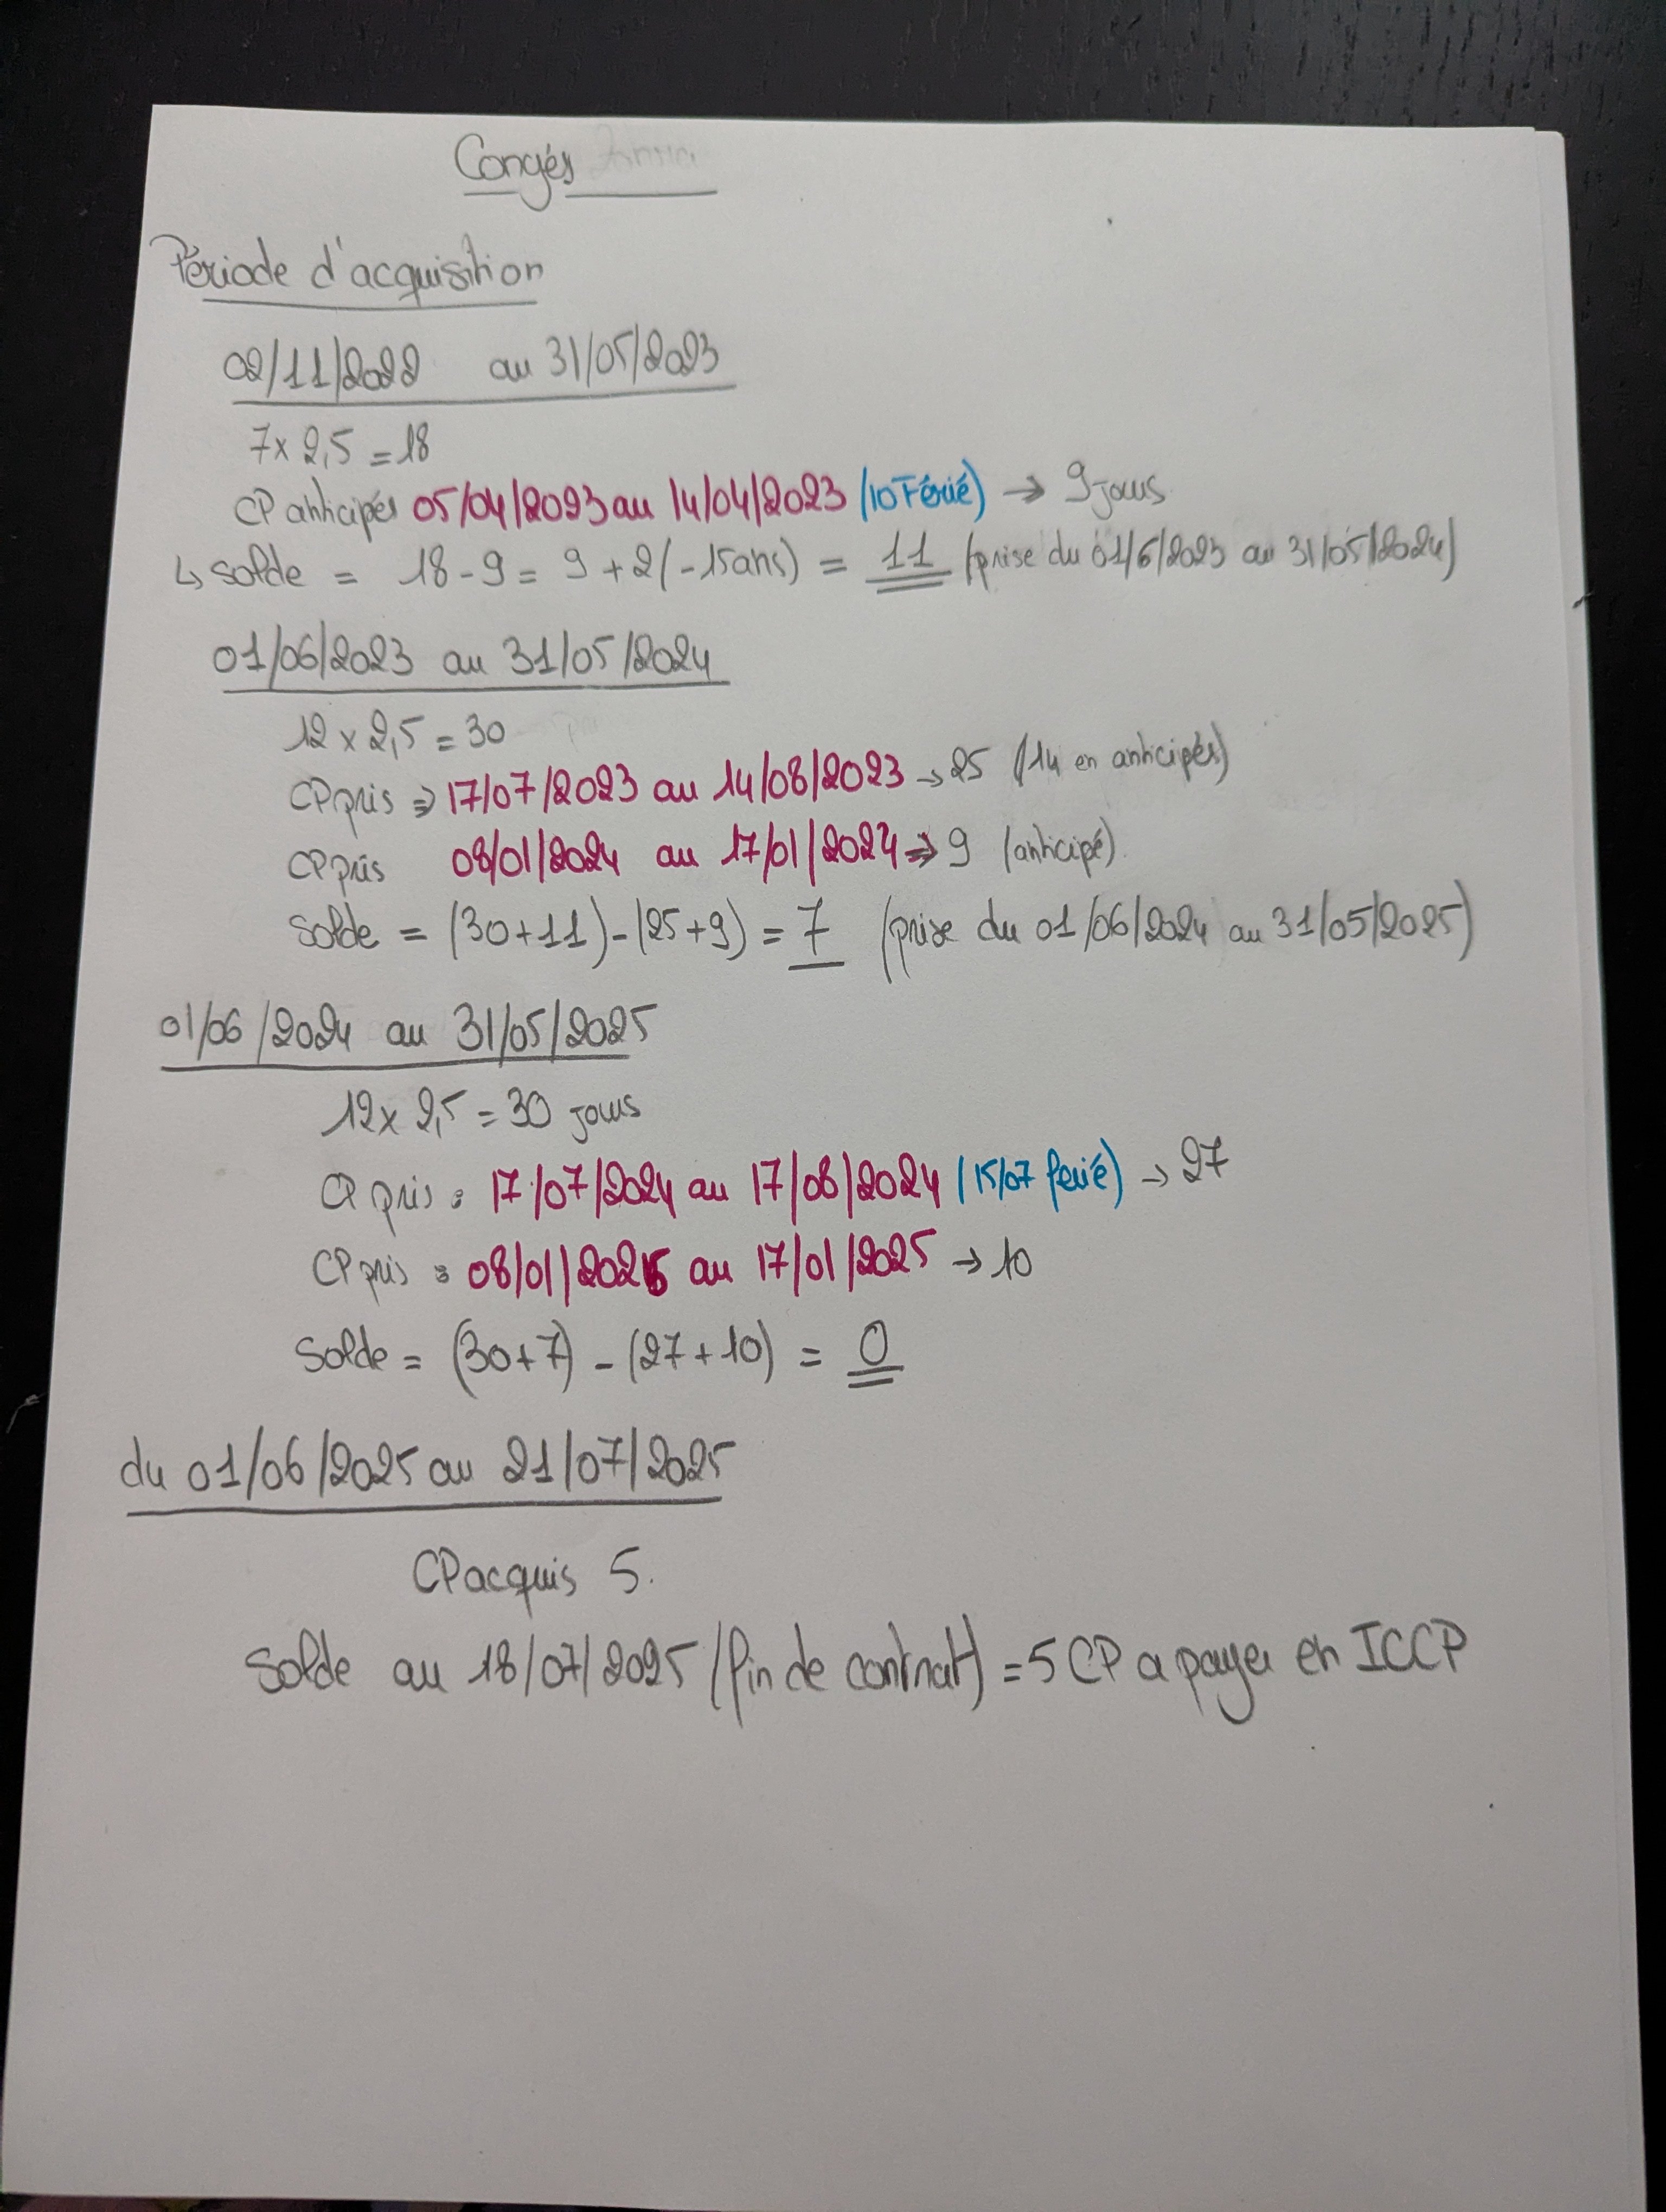 Congés
Période d'acquisition
02/11/2022 au 31/05/2023
7 x 2,5 = 18
CP anticipés 05/04/2023 au 14/04/2023 (10 Férié) → 9 jours
↳ solde = 18 - 9 = 9 + 2 (-15ans) = 11 (prise du 01/6/2023 au 31/05/2024)
01/06/2023 au 31/05/2024
12 x 2,5 = 30
CP pris ⇒ 17/07/2023 au 14/08/2023 → 25 (14 en anticipés)
CP pris 08/01/2024 au 17/01/2024 ⇒ 9 (anticipé)
Solde = (30+11) - (25+9) = 7 (prise du 01/06/2024 au 31/05/2025)
01/06/2024 au 31/05/2025
12 x 2,5 = 30 jours
CP pris : 17/07/2024 au 17/08/2024 (15/07 ferié) → 27
CP pris : 08/01/2025 au 17/01/2025 → 10
Solde = (30+7) - (27+10) = 0
du 01/06/2025 au 21/07/2025
CP acquis 5.
Solde au 18/07/2025 (fin de contrat) = 5 CP a payer en ICCP